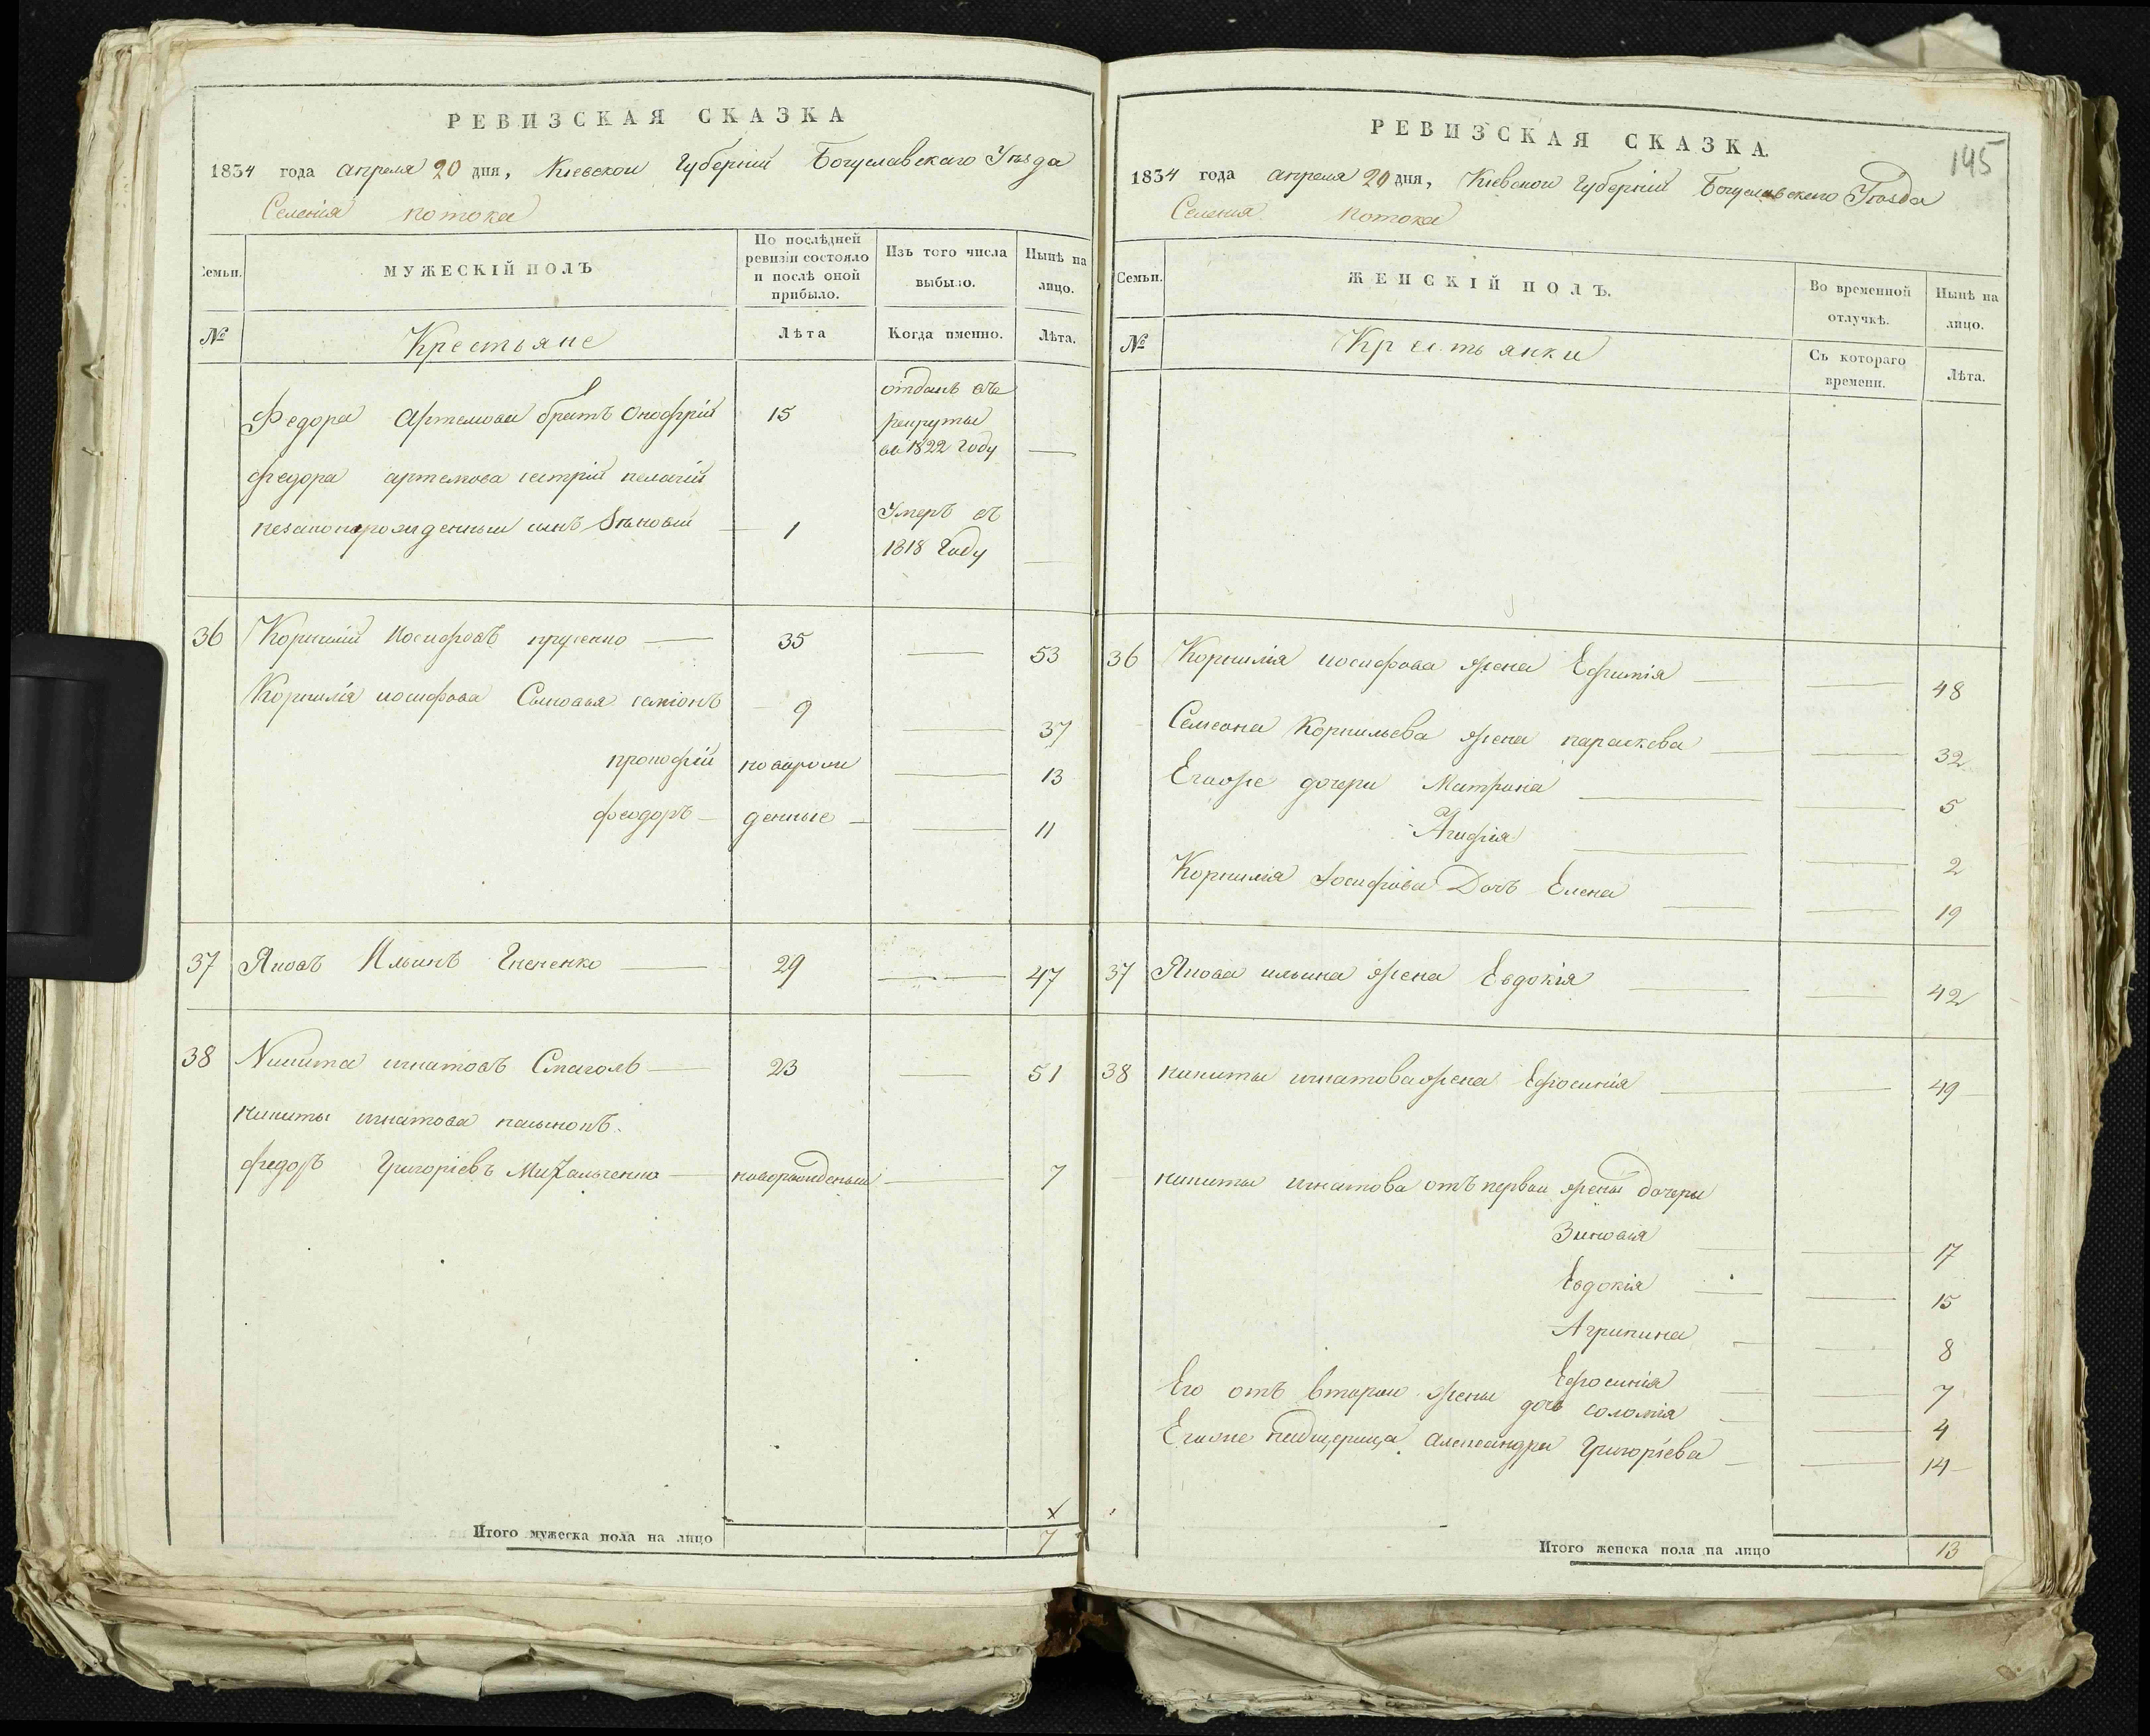 РЕВИЗСКАЯ СКАЗКА
1834 года апреля 20 дня, Киевской Губернiи Богуславскаго Уѣзда
Селенiя потока
Семьи.
МУЖЕСКIЙ ПОЛЪ
По послѣдней ревизiи состояло и послѣ оной прибыло.
Изъ того числа выбыло.
Нынѣ на лицо.
№
Крестьяне
Лѣта
Когда именно.
Лѣта.
Федора Артемова братъ Онофрiй 15 отданъ въ
рекруты
въ 1822 Году —
федора артемова сестрiи пелагiи
незаконорожденный сынъ 1 Умеръ въ
1818 Году —
36 Корнилiй Иосифовъ — 35 — 53
Корнилiя иосифова Сыновья семiонъ 9 — 37
прокофiй новорож — 13
феодоръ — денные — — 11
37 Яковъ Ильинъ — 29 — — 47
38 Никита игнатовъ — 23 — 51
никиты игнатова пасынокъ.
федоръ Григорiевъ Михальченко — новорожденый — 7
Итого мужеска пола на лицо 7
РЕВИЗСКАЯ СКАЗКА.
145
1834 года апреля 20 дня, Киевской Губернiи Богуславскаго Уѣзда
Селения потока
Семьи.
ЖЕНСКIЙ ПОЛЪ.
Во временной отлучкѣ.
Нынѣ на лицо.
№
Крестьянки
Съ котораго времени.
Лѣта.
36 Корнилiя иосифова жена Ефимiя — — 48
Семеона Корнильева жена параскева — — 32
Егоже дочери Матрина — — 5
Агафiя — — 2
Корнилiя Иосифова Дочь Елена — — 19
37 Якова ильина жена Евдокiя — — 42
38 никиты игнатова жена Ефросинiя — — 49
никиты игнатова отъ первой жены дочери
Зиновiя — — 17
Евдокiя — — 15
Агрипина — — 8
Ефросинiя — — 7
Его отъ второй жены дочь соломiя — — 4
Егоже падщерица александра Григорiева — — 14
Итого женска пола на лицо 13